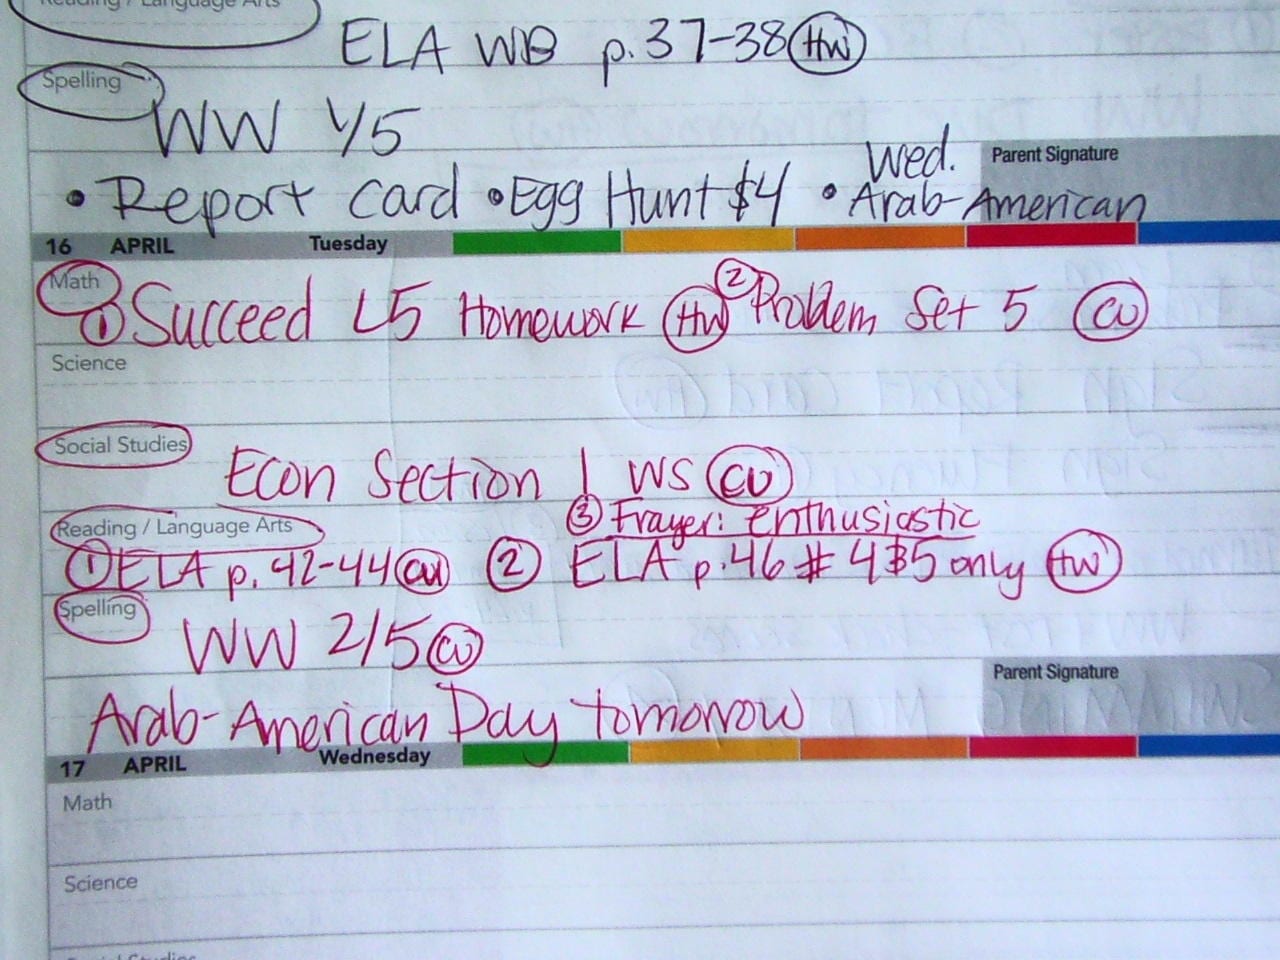 Reading / Language Arts
ELA WB p. 37-38 HW
Spelling
WW 1/5
• Report Card • Egg Hunt $4 • Wed. Arab-American
Parent Signature
16 APRIL Tuesday
Math
① Succeed L5 Homework HW ② Problem Set 5 CW
Science
Social Studies
Econ Section 1 WS CW
Reading / Language Arts
③ Frayer: enthusiastic
① ELA p. 42-44 CW ② ELA p. 46 # 4 & 5 only HW
Spelling
WW 2/5 CW
Parent Signature
Arab-American Day tomorrow
17 APRIL Wednesday
Math
Science
Social Studies